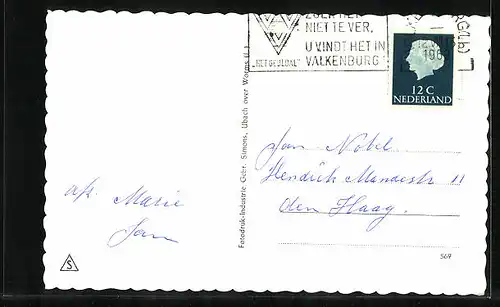 ZOEK HET
NIET TE VER,
U VINDT HET IN
VALKENBURG
"HET GEULDAL"
196
12 C
NEDERLAND
Fotodruk-Industrie Gebr. Simons, Ubach over Worms
Jan Nobel
Hendrik
11
den Haag.
afz. Marie
Jan
S
569